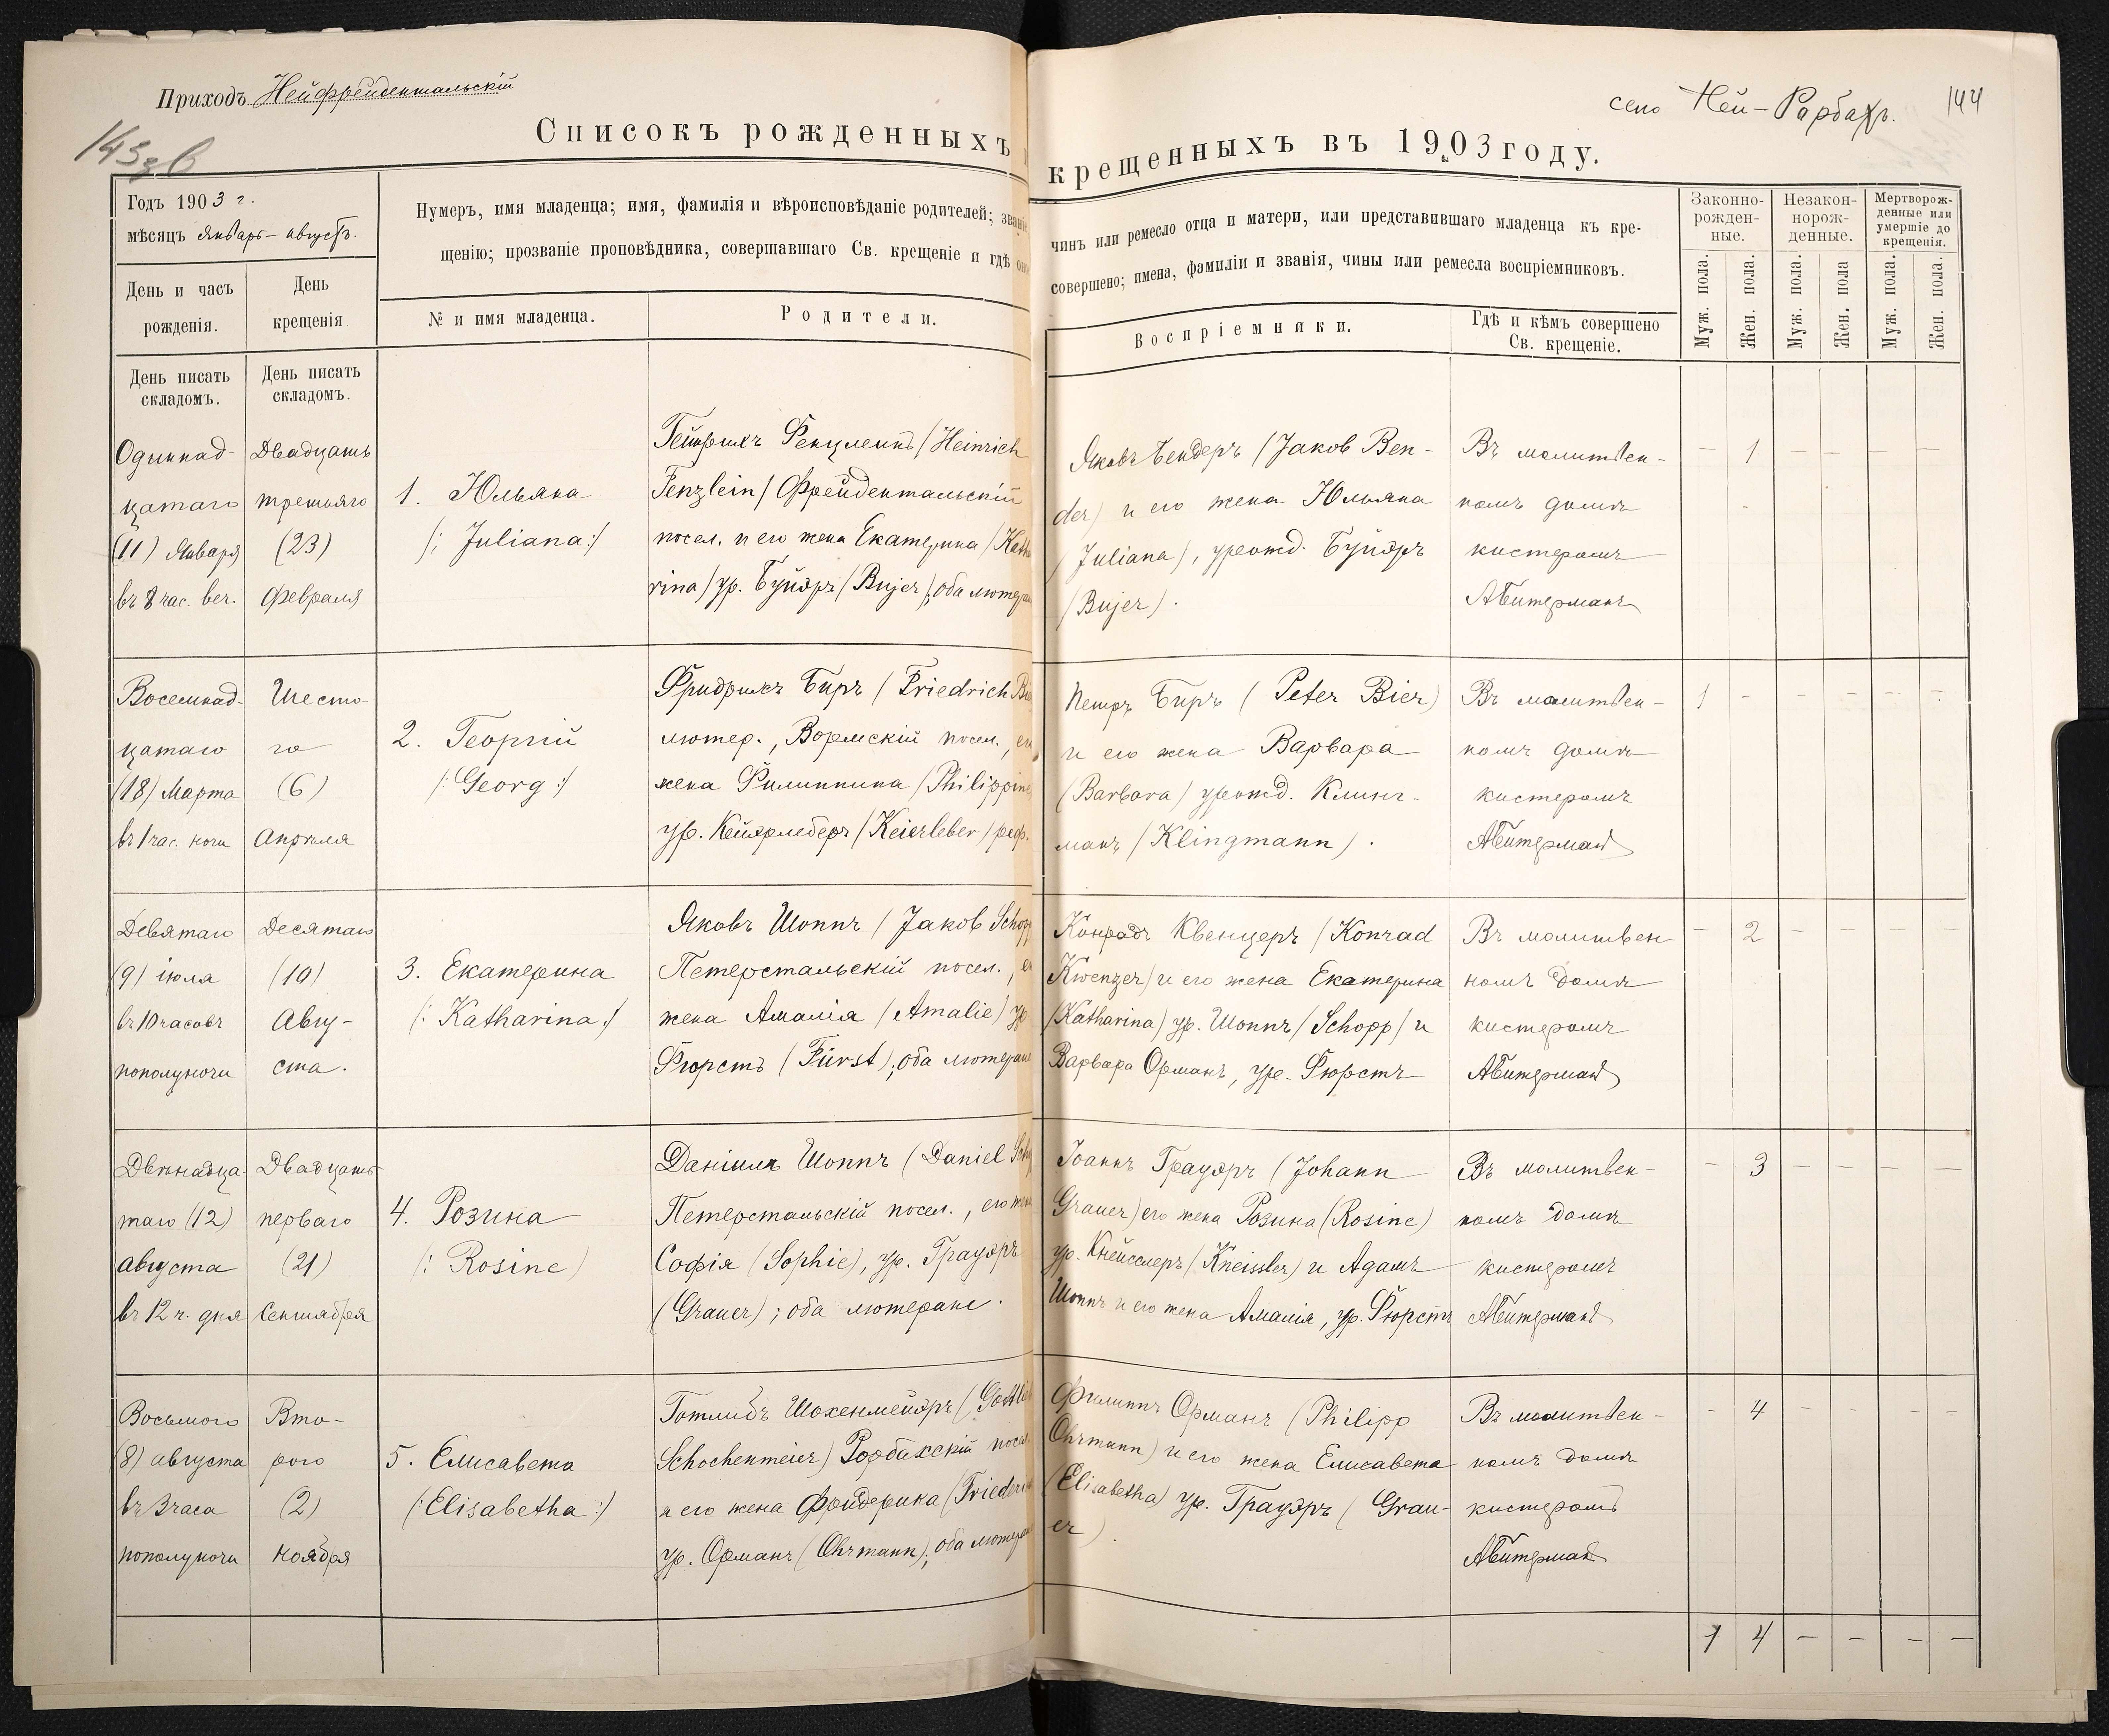 Приходъ Нейфрейдентальскій
село Ней-Рорбахъ.
144
Списокъ рожденныхъ
крещенныхъ въ 1903 году.
Годъ 1903 г.
мѣсяцъ январь – августъ.
День и часъ
рожденія.
День
крещенія
Нумеръ, имя младенца; имя, фамилія и вѣроисповѣданіе родителей;
щенію; прозваніе проповѣдника, совершавшаго Св. крещеніе и гдѣ
№ и имя младенца.
Родители.
чинъ или ремесло отца и матери, или представившаго младенца къ кре-
совершено; имена, фамиліи и званія, чины или ремесла воспріемниковъ.
Воспріемники.
Гдѣ и кѣмъ совершено
Св. крещеніе.
Законно-
рожден-
ные.
Незакон-
норож-
денные.
Мертворож-
денные или
умершіе до
крещенія.
Муж. пола.
Жен. пола.
Муж. пола.
Жен. пола
Муж. пола.
Жен. пола.
День писать
складомъ.
День писать
складомъ.
Одиннад-
цатаго
(11) Января
въ 8 час. веч.
Двадцать
третьяго
(23)
Февраля
1. Юльяна
/: Juliana :/
Гейнрихъ Фенцлейнъ / Heinrich
Fenzlein / Фрейдентальскій
посел. и его жена Екатерина / Katha
rina / ур. Буйэръ / Bujer /; оба лютеран
Яковъ Бендеръ / Jakob Ben-
der) и его жена Юльяна
(Juliana), урожд. Буйэръ
(Bujer).
Въ молитвен-
номъ домѣ
кистеромъ
Абитерманъ
— 1 — — — —
Восемнад-
цатаго
(18) Марта
въ 1 час. ночи
Шесто-
го
(6)
Апрѣля
2. Георгій
/: Georg :/
Фридрихъ Биръ / Friedrich Bi
лютер., Вормскій посел., ег
жена Филиппина / Philippine
ур. Кейэрлеберъ / Keierleber / реф.
Петръ Биръ ( Peter Bier)
и его жена Варвара
(Barbara) урожд. Клинг-
манъ / Klingmann).
Въ молитвен-
номъ домѣ
кистеромъ
Абитерманъ
1 — — — — —
Девятаго
(9) іюля
въ 10 часовъ
пополуночи
Десятаго
(10)
Авгу-
ста.
3. Екатерина
/: Katharina :/
Яковъ Шоппъ / Jakob Schopp
Петерстальскій посел., ег
жена Амалія / Amalie) ур
Фюрстъ ( Fürst); оба лютеране
Конрадъ Квенцеръ / Konrad
Kwenzer) и его жена Екатерина
(Katharina) ур. Шоппъ / Schopp / и
Варвара Орманъ, ур. Фюрстъ
Въ молитвен
номъ домѣ
кистеромъ
Абитерманъ
— 2 — — — —
Двѣнадца-
таго (12)
августа
въ 12 ч. дня
Двадцать
перваго
(21)
Сентября
4. Розина
(: Rosine)
Даніилъ Шоппъ ( Daniel Scho
Петерстальскій посел., его жена
Софія (Sophie), ур. Грауэръ
(Grauer); оба лютеране.
Іоаннъ Грауэръ ( Johann
Grauer) его жена Розина (Rosine)
ур. Кнейсслеръ / Kneissler) и Адамъ
Шоппъ и его жена Амалія, ур. Фюрстъ
Въ молитвен-
номъ домѣ
кистеромъ
Абитерманъ
— 3 — — — —
Восьмого
(8) августа
въ 3 часа
пополуночи
Вто-
рого
(2)
Ноября
5. Елисавета
(: Elisabetha :)
Готлибъ Шохенмейэръ ( Gottlieb
Schochenmeier) Рорбахскій посел
и его жена Фридерика (Friederi
ур. Орманъ ( Ohrmann); оба лютеран
Филиппъ Орманъ (Philipp
Ohrmann) и его жена Елисавета
(Elisabetha) ур. Грауэръ ( Grau-
er)
Въ молитвен-
номъ домѣ
кистеромъ
Абитерманъ
— 4 — — — —
1 4 — — — —